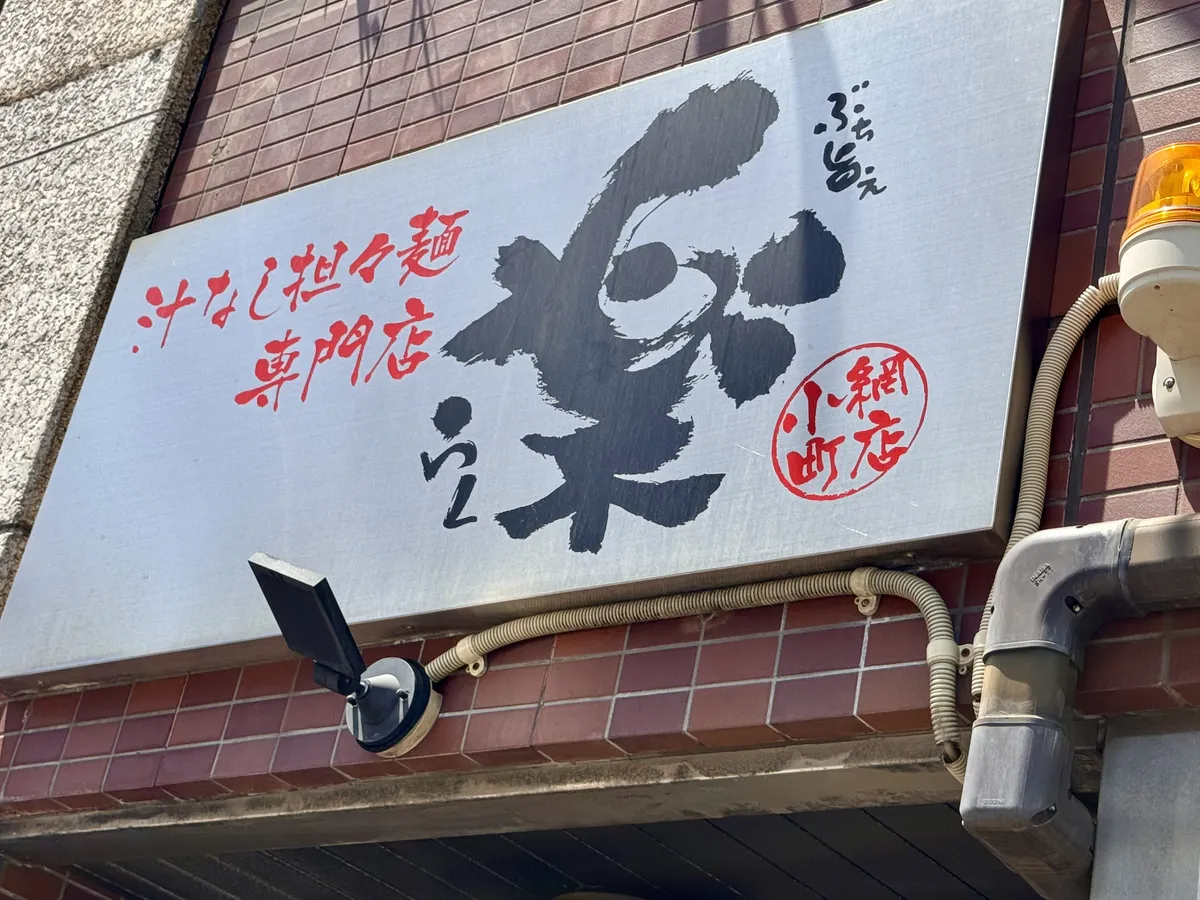 ぶち旨え
楽
らく
汁なし担々麺
専門店
小網
町店